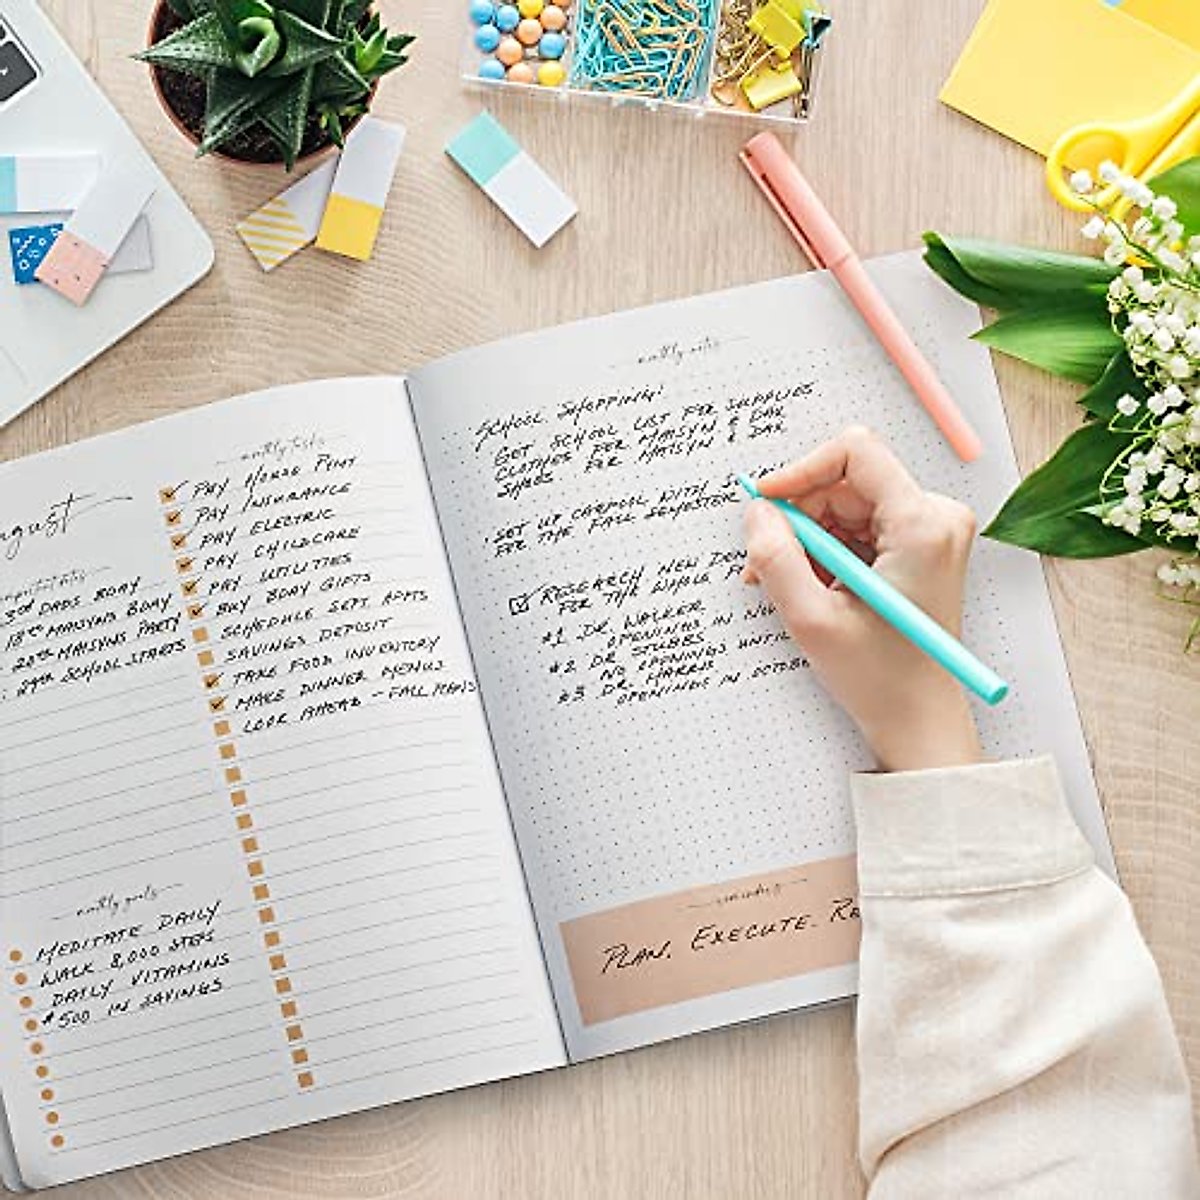 monthly tasks
PAY HOUSE PYMT
PAY INSURANCE
PAY ELECTRIC
PAY CHILDCARE
PAY UTILITIES
BUY BDAY GIFTS
SCHEDULE SEPT. APPTS
SAVINGS DEPOSIT
TAKE FOOD INVENTORY
MAKE DINNER MENUS
LOOK AHEAD - FALL PLANS
ugust
important dates
3RD DADS BDAY
18TH MAISYNS BDAY
20TH MAISYNS PARTY
29TH SCHOOL STARTS
monthly goals
MEDITATE DAILY
WALK 8,000 STEPS
DAILY VITAMINS
$500 IN SAVINGS
monthly notes
SCHOOL SHOPPING!
GET SCHOOL LIST FOR SUPPLIES.
CLOTHES FOR MAISYN & DAX
SHOES FOR MAISYN & DAX
SET UP CARPOOL WITH
FOR THE FALL SEMESTER
RESEARCH NEW DEN
FOR THE WHOLE F
#1 DR. WALKER,
OPENINGS IN NOV
#2 DR STUBBS
NO OPENINGS UNTIL
#3 DR. HARRIS
OPENINGS IN OCTOBE
reminders
PLAN. EXECUTE. RE